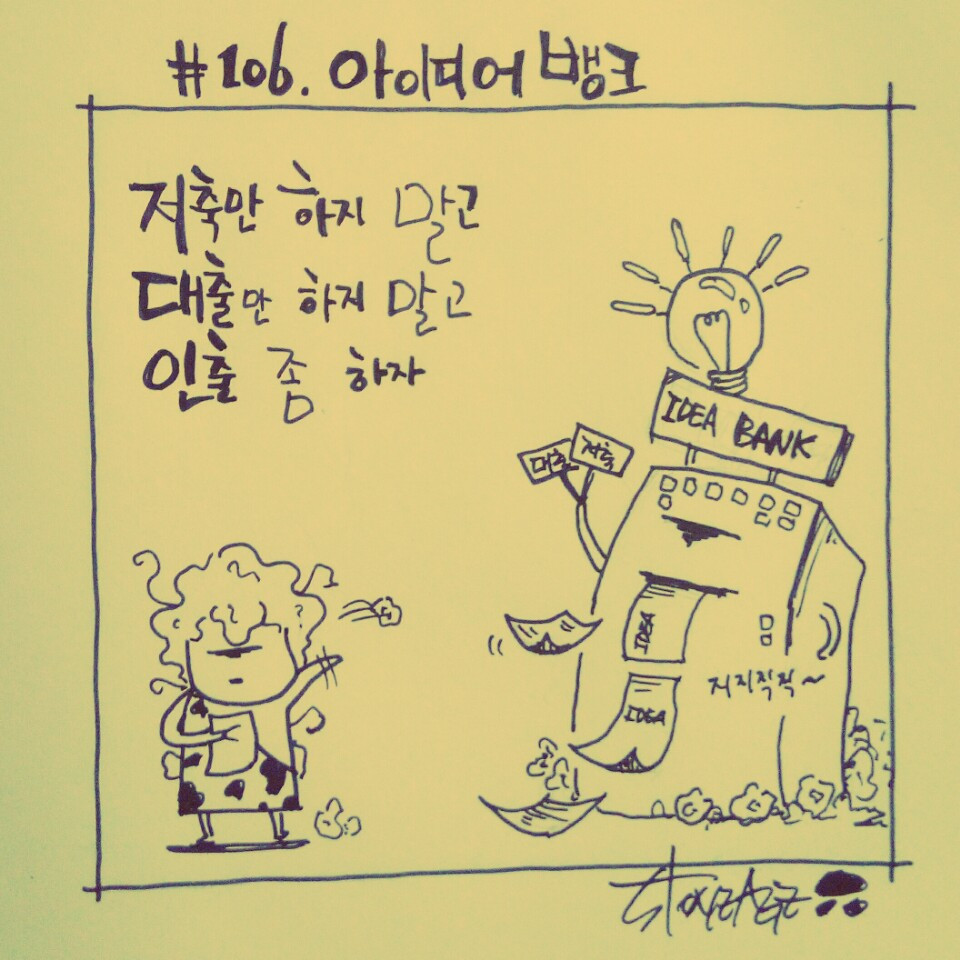 #106. 아이디어 뱅크
저축만 하지 말고
대출만 하지 말고
인출 좀 하자
IDEA BANK
대출
저축
IDEA
IDEA
지지직직~